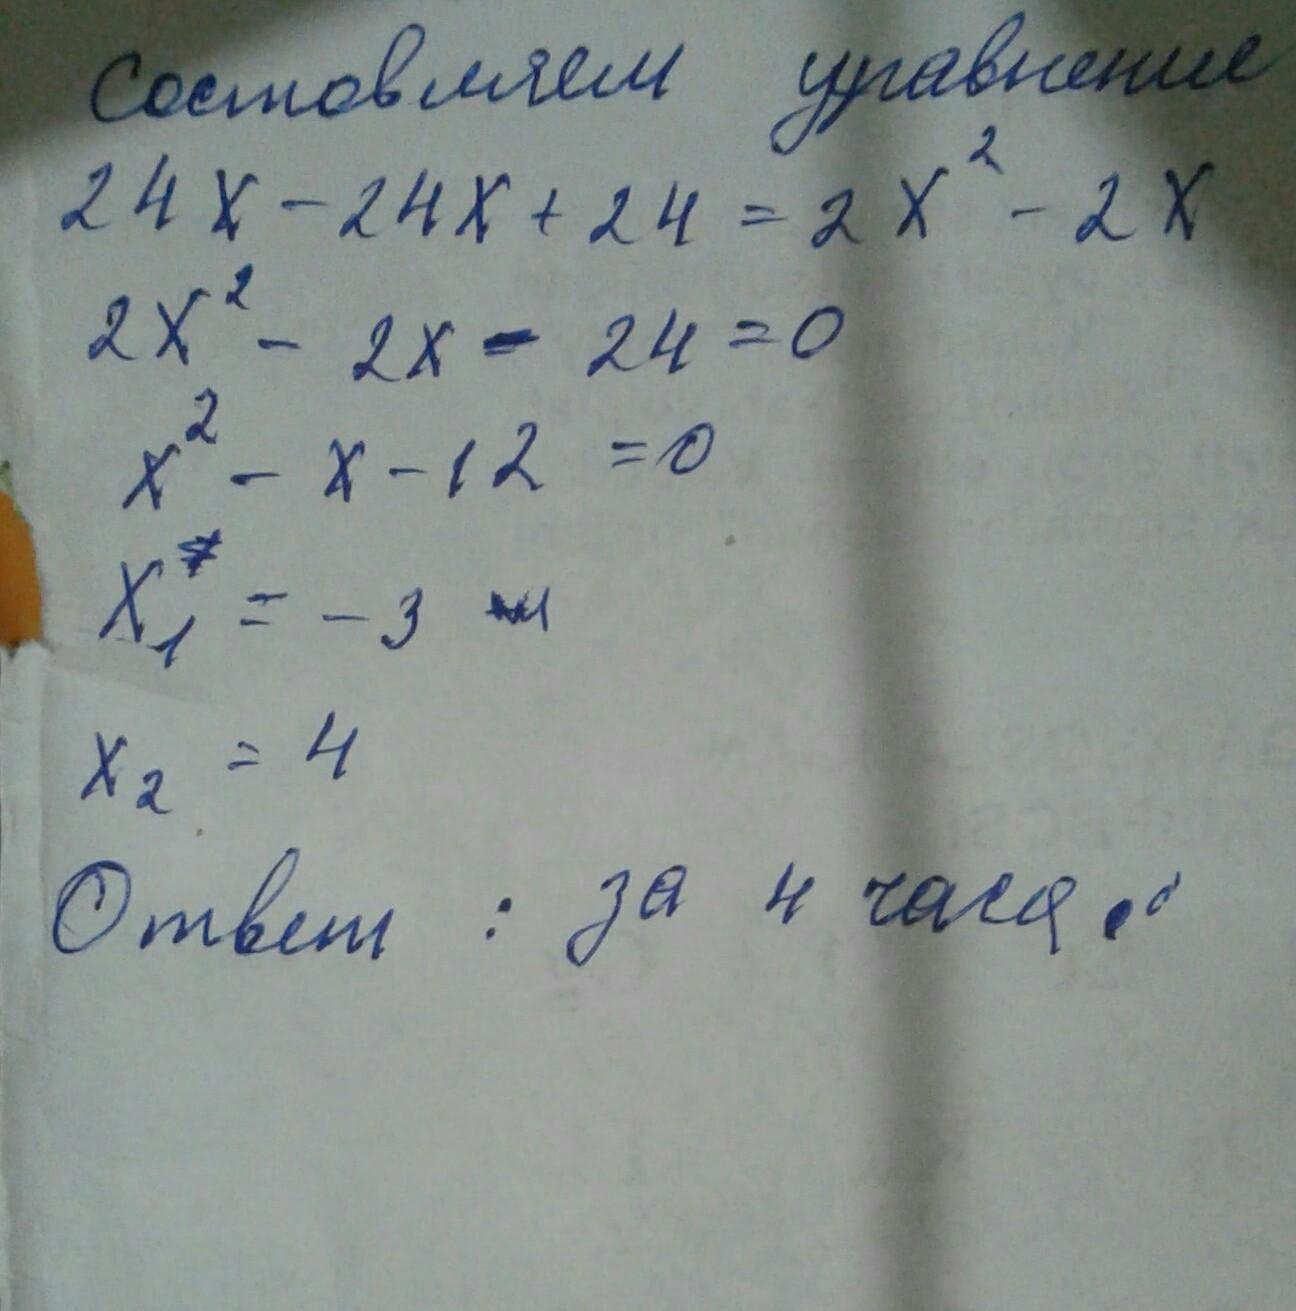 Составляем уравнение
24x - 24x + 24 = 2x² - 2x
2x² - 2x - 24 = 0
x² - x - 12 = 0
x₁ = -3
x₂ = 4
Ответ : за 4 часа.